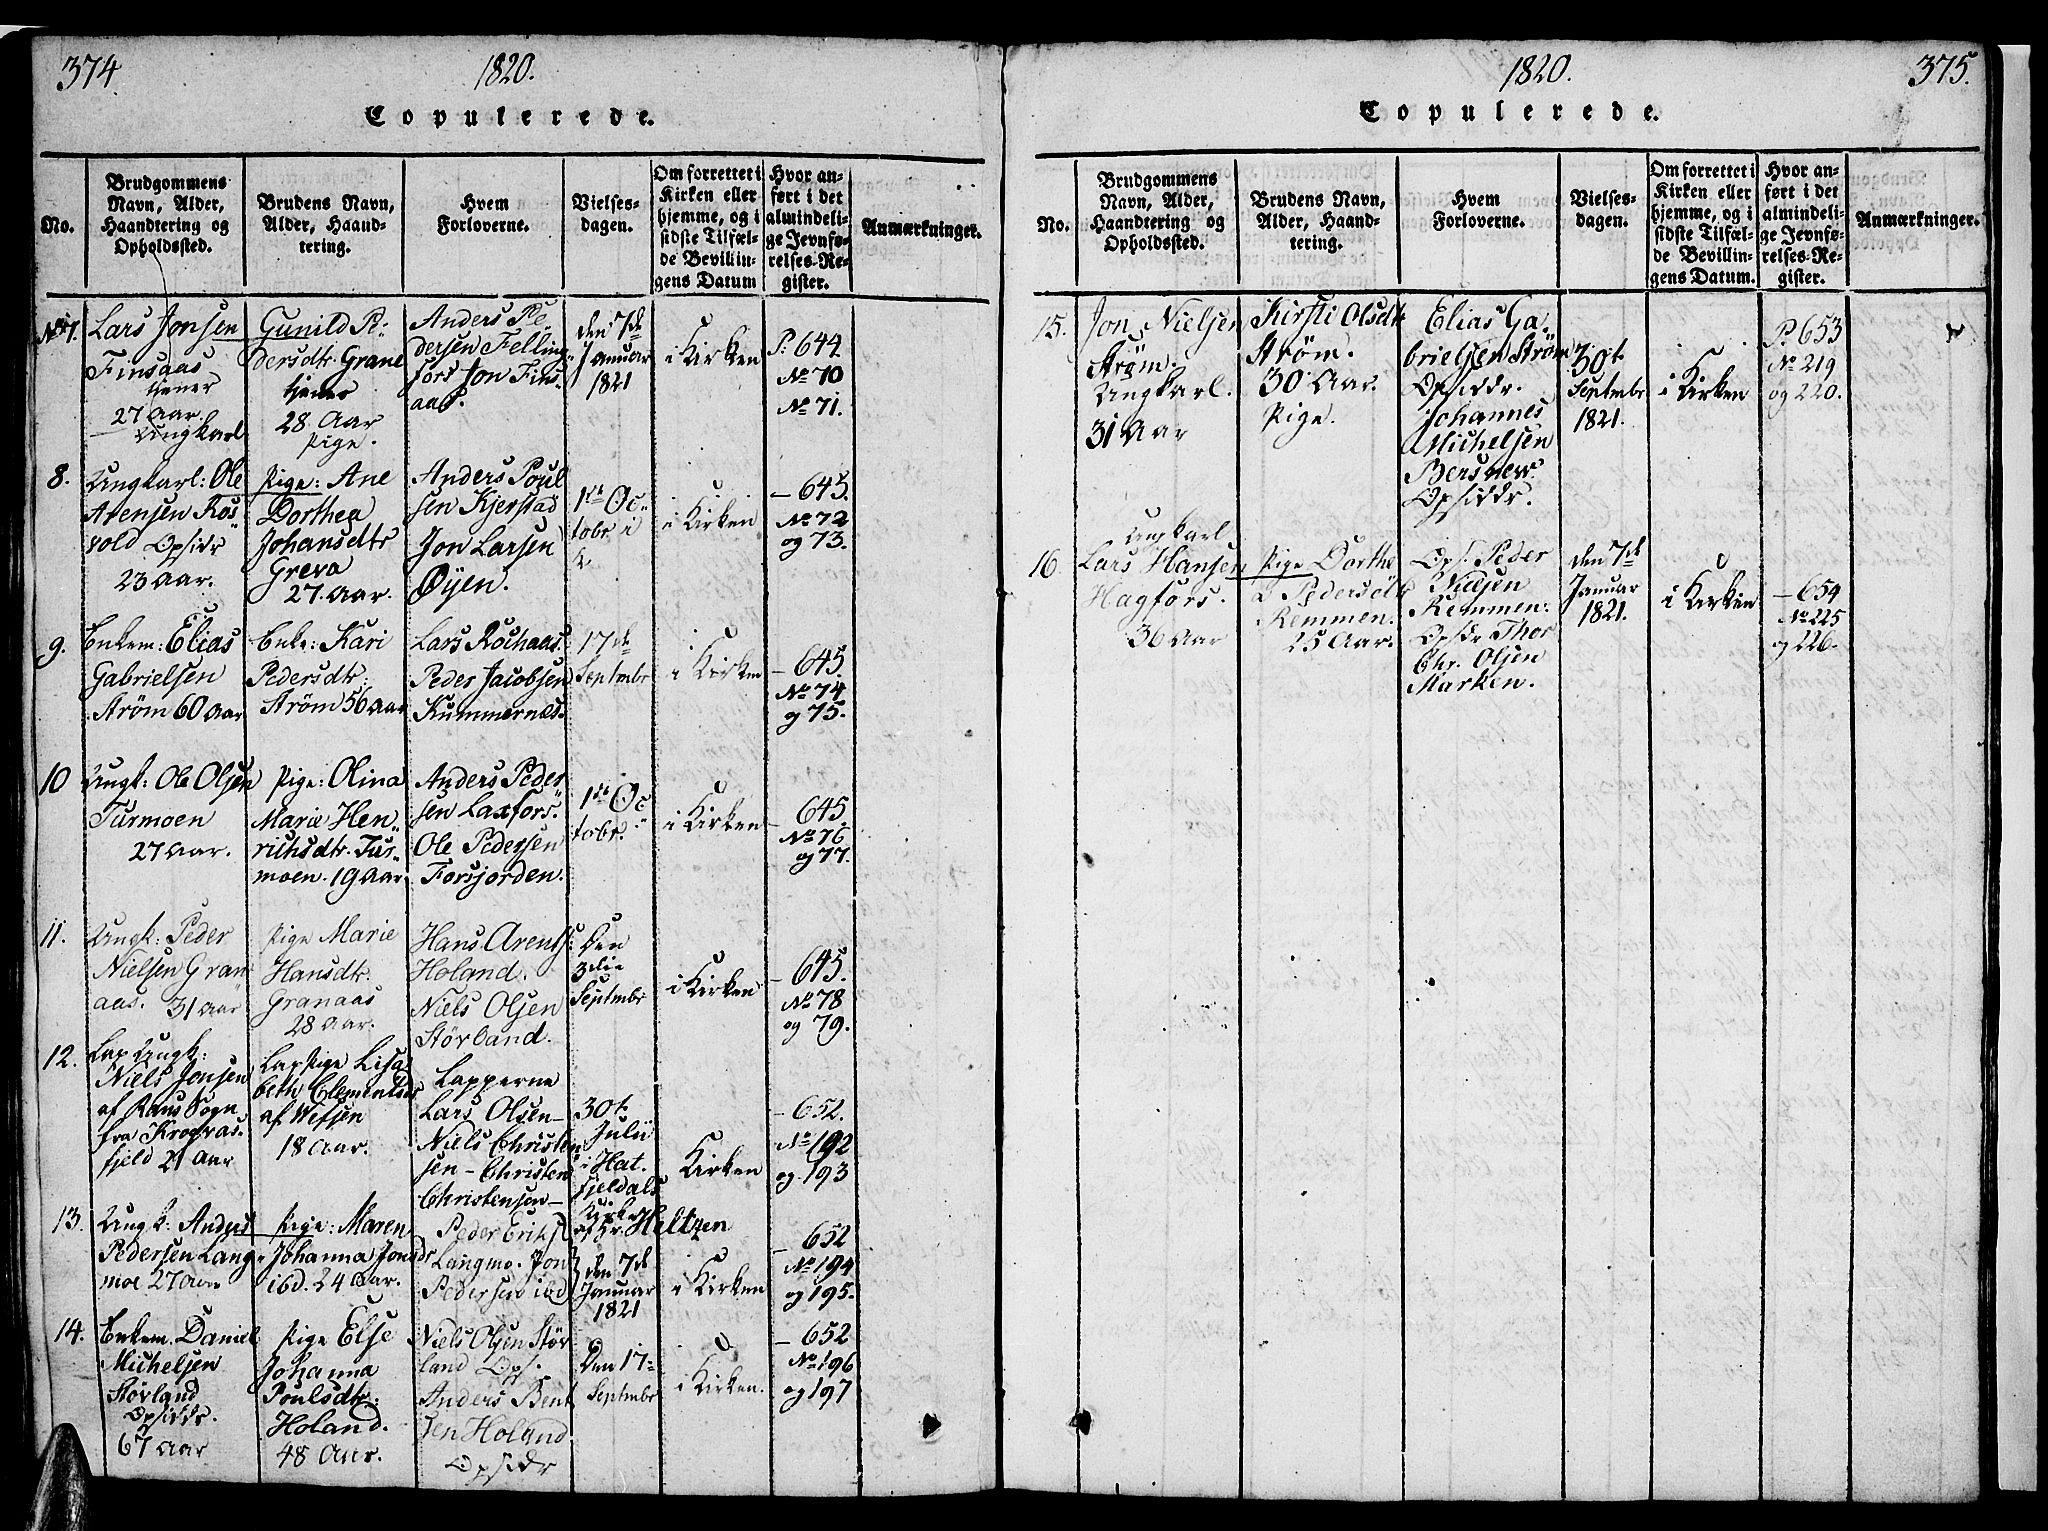 374.
1820.
Copulerede.
No.
Brudgommens
Navn, Alder,
Haandtering og
Opholdssted.
Brudens Navn,
Alder, Haand-
tering.
Hvem
Forloverne.
Vielses-
dagen.
Om forrettet i
Kirken eller
hjemme, og i
sidste Tilfæl-
de Bevillin-
gens Datum
Hvor an-
ført i det
almindeli-
ge Jevnfø-
relses-Re-
gister.
Anmærkninger.
No 7.
Lars Jonsen
Finsaas
tjener
27 Aar.
Ungkarl
Gunild Pe-
dersdtr Grane
tjener
28 Aar
Pige.
Anders Pe-
dersen Felling-
fors Jon Fins-
aas.
den 7de
Januar
1821
i Kirken
P. 644
No 70
No 71.
8.
Ungkarl: Ole
Arensen Kos-
vold Opsidr
23 Aar.
Pige: Ane
Dorthea
Johansdtr
Greva
27. Aar.
Anders Poul
sen Kjerstad
Jon Larsen
Øyen.
1ste Oc-
tobr.
i Kirken
- 645.
No 72
og 73.
9.
Enkem: Elias
Gabrielsen
Strøm 60 Aar
Enke: Kari
Pedersdtr:
Strøm 56 Aar
Lars
Peder Jacobsen
Kummernæs.
17de
Septembr
i Kirken
- 645.
No 74
og 75.
10
Ungk: Ole Olsen
Turmoen
27 Aar.
Pige: Olina
Marie Hen-
richsdtr. Tur-
moen. 19 Aar
Anders Peder
sen Laxfors.
Ole Pedersen
Forsjorden.
1ste Oc-
tobr.
i Kirken
- 645.
No 76
og 77.
11.
Ungk: Peder
Nielsen Gran
aas. 31 Aar
Pige Marie
Hansdtr.
Granaas
28 Aar.
Hans Arents:
Holand.
Niels Olsen
Størland.
Den
3die
Septmbr
i Kirken
- 645.
No 78
og 79.
12.
Lap Ungk:
Niels Jonsen
af Rans Sogn
fra Krogvas-
fjeld 21 Aar
Lap Pige Lisa-
beth Clementsdr
af Wefsen
18 Aar.
Lapperne
Lars Olsen -
Niels Christen
sen - Christen
Christensen -
30t.
Julii
i Hat-
fjeldals
Kirke
af Hr. Heltzen
Kirken
- 652.
No 192
og 193
13.
Ungk: Anders
Pedersen Lang-
moe 27 Aar
Pige: Maren
Johanna Jonsdr
ibd. 24 Aar.
Peder Eriks.
Langmo. Jon
Pedersen ibd
den 7de
Januar
1821
i Kirken
- 652
No 194
og 195.
14.
Enkem. Daniel
Michelsen
Størland
Opsiddr.
67 Aar
Pige Else
Johanna
Poulsdtr:
Holand.
48 Aar.
Niels Olsen Stör
land Ops.
Anders Bent
sen Holand
Opsidr
Den 17-
Septmbr
i Kirken.
- 652
No 196
og 197
1820.
375.
Copulerede.
No.
Brudgommens
Navn, Alder,
Haandtering og
Opholdssted.
Brudens Navn,
Alder, Haand-
tering.
Hvem
Forloverne.
Vielses-
dagen.
Om forrettet i
Kirken eller
hjemme, og i
sidste Tilfæl-
de Bevillin-
gens Datum.
Hvor an-
ført i det
almindeli-
ge Jevnfø-
relses-Re-
gister.
Anmærkninger.
15.
Jon Nielsen
Strøm.
Ungkarl.
31 Aar
Kirsti Olsdtr
Strøm.
30 Aar.
Pige.
Elias Ga-
brielsen Strøm
Opsiddr.
Johannes
Michelsen
Opsiddr.
30t.
Septmbr
1821.
i Kirken
P. 653
No 219
og 220.
16.
Ungkarl
Lars Hansen
Hagfors.
36 Aar
Pige Dorthe
a Pedersdtr
Remmen.
25 Aar.
Ops. Peder
Nielsen
Remmen:
Opsidr Thor
Chr. Olsen
Marken.
den 7de
Januar
1821.
i Kirken
- 654
No 225
og 226.